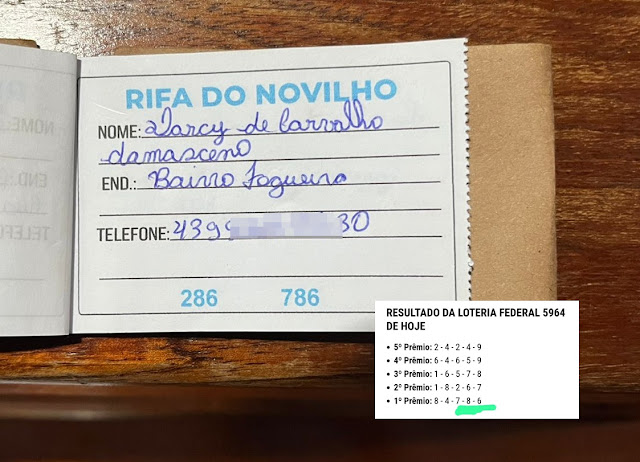 RIFA DO NOVILHO
NOME: Darcy de Carvalho
damasceno
END.: Bairro Fogueira
TELEFONE: 439 30
286 786
RESULTADO DA LOTERIA FEDERAL 5964
DE HOJE
• 5º Prêmio: 2 - 4 - 2 - 4 - 9
• 4º Prêmio: 6 - 4 - 6 - 5 - 9
• 3º Prêmio: 1 - 6 - 5 - 7 - 8
• 2º Prêmio: 1 - 8 - 2 - 6 - 7
• 1º Prêmio: 8 - 4 - 7 - 8 - 6